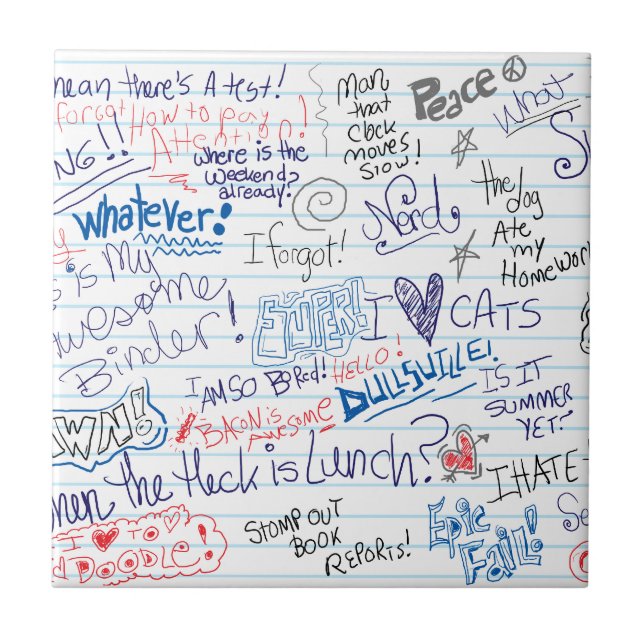 mean there's A test!
forgot How to pay
Attention!
NG!!
where is the
weekend?
already?
Man
that
clock
moves
slow!
Peace
What
the dog
Ate
my
Homework
whatever!
I forgot!
Nerd
is my
Awesome
Binder!
SUPER!
I CATS
I AM SO BORED!
HELLO!
DULLSVILLE!
IS IT
SUMMER
YET?
BACON is
AWESOME
WN!
When the Heck is Lunch?
I HATE
I TO
DOODLE!
STOMP OUT
BOOK
REPORTS!
Epic
FAiL!
Se